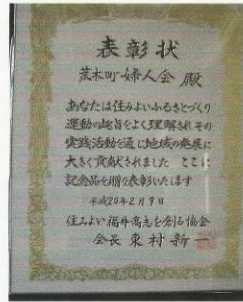 表彰状
荒木町婦人会 殿
あなたは住みよいふるさとづくり
運動の趣旨をよく理解されその
実践活動を通じ地域の発展に
大きく貢献されました ここに
記念品を贈り表彰いたします
平成20年2月9日
住みよい福井高志を創る協会
会長 東村新一